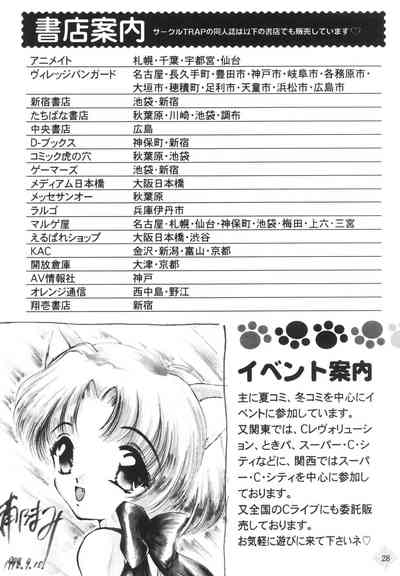 書店案内 サークルTRAPの同人誌は以下の書店でも販売しています♡
アニメイト 札幌・千葉・宇都宮・仙台
ヴィレッジバンガード 名古屋・長久手町・豊田市・神戸市・岐阜市・各務原市・
大垣市・穂積町・足利市・天童市・浜松市・広島市
新宿書店 池袋・新宿
たちばな書店 秋葉原・川崎・池袋・調布
中央書店 広島
D-ブックス 神保町・新宿
コミック虎の穴 秋葉原・池袋
ゲーマーズ 池袋・新宿
メディアム日本橋 大阪日本橋
メッセサンオー 秋葉原
ラルゴ 兵庫伊丹市
マルゲ屋 名古屋・札幌・仙台・神保町・池袋・梅田・上六・三宮
えるぱれショップ 大阪日本橋・渋谷
KAC 金沢・新潟・富山・京都
開放倉庫 大津・京都
AV情報社 神戸
オレンジ通信 西中島・野江
翔壱書店 新宿
イベント案内
主に夏コミ、冬コミを中心にイ
ベントに参加しています。
又関東では、Cレヴォリュー
ション、ときパ、スーパー・C・シ
ティなどに、関西ではスーパ
ー・C・シティを中心に参加し
ております。
又全国のCライブにも委託販
売しております。
お気軽に遊びに来て下さいネ♡
28